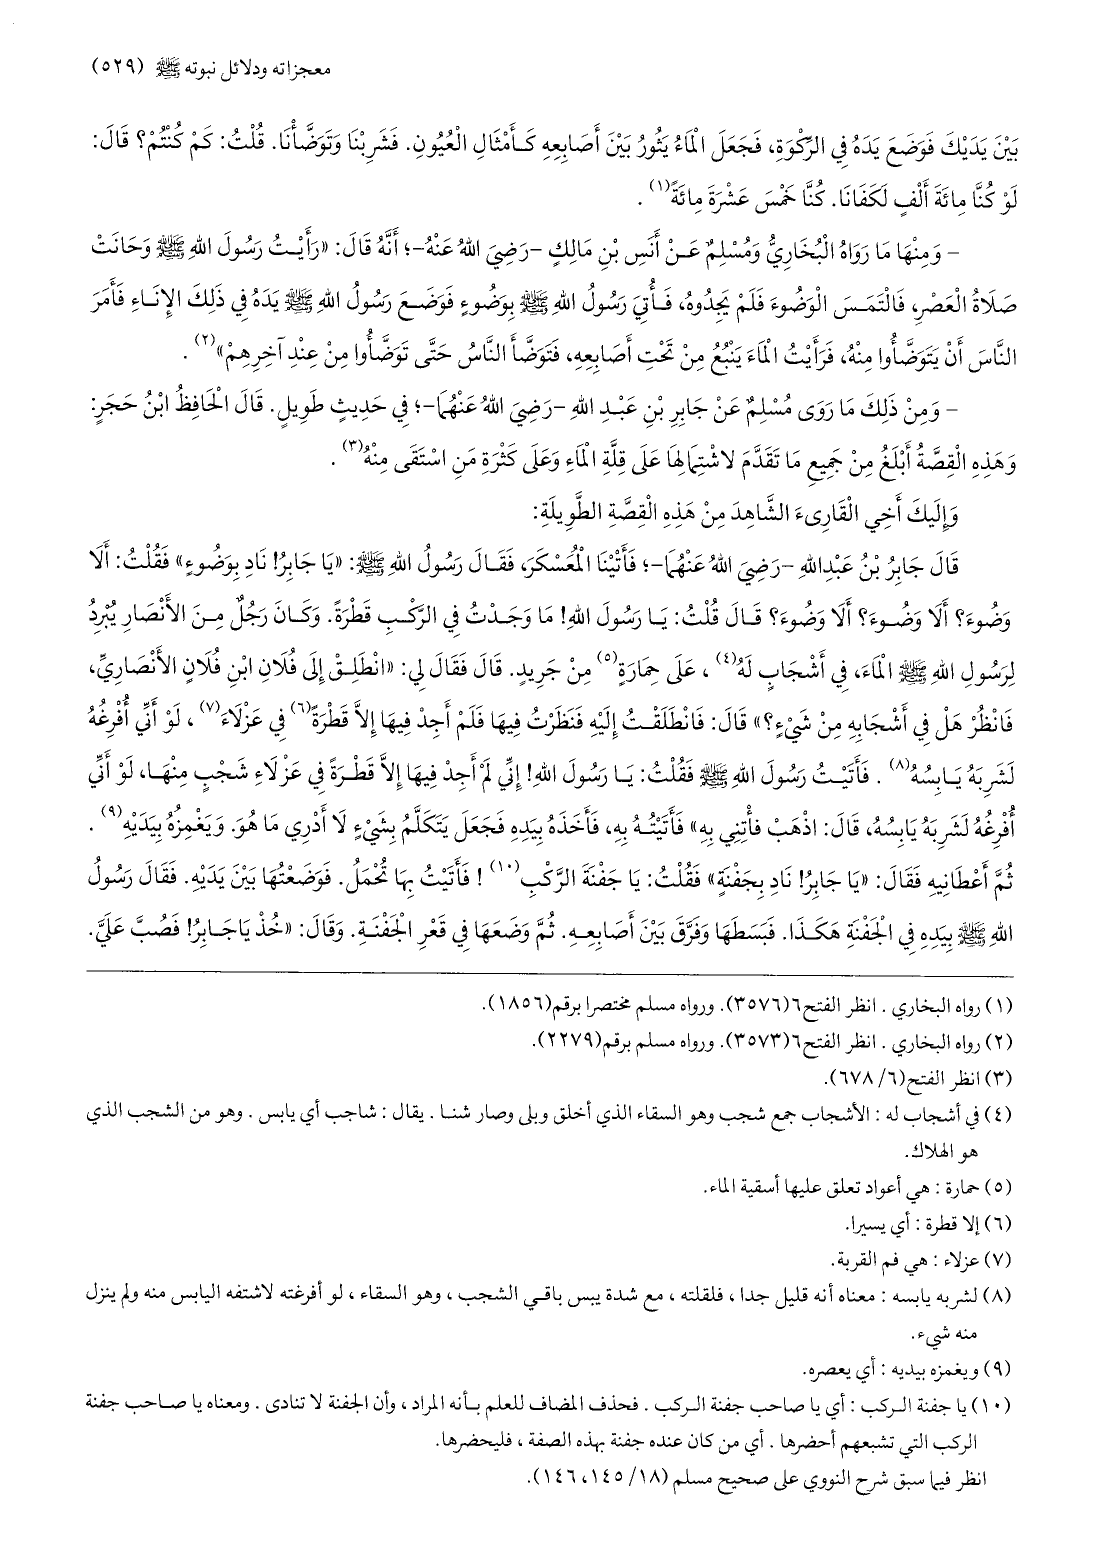 معجزاته ودلائل نبوته ﷺ (٥٢٩)
بَيْنَ يَدَيْكَ فَوَضَعَ يَدَهُ فِي الرَّكْوَةِ، فَجَعَلَ الْمَاءُ يَثُورُ بَيْنَ أَصَابِعِهِ كَأَمْثَالِ الْعُيُونِ. فَشَرِبْنَا وَتَوَضَّأْنَا. قُلْتُ: كَمْ كُنْتُمْ؟ قَالَ:
لَوْ كُنَّا مِائَةَ أَلْفٍ لَكَفَانَا. كُنَّا خَمْسَ عَشْرَةَ مِائَةً(١) .
– وَمِنْهَا مَا رَوَاهُ الْبُخَارِيُّ وَمُسْلِمٌ عَنْ أَنَسِ بْنِ مَالِكٍ –رَضِيَ اللهُ عَنْهُ–؛ أَنَّهُ قَالَ: «رَأَيْتُ رَسُولَ اللهِ ﷺ وَحَانَتْ
صَلَاةُ الْعَصْرِ، فَالْتَمَسَ الْوَضُوءَ فَلَمْ يَجِدُوهُ، فَأُتِيَ رَسُولُ اللهِ ﷺ بِوَضُوءٍ فَوَضَعَ رَسُولُ اللهِ ﷺ يَدَهُ فِي ذَلِكَ الإِنَاءِ فَأَمَرَ
النَّاسَ أَنْ يَتَوَضَّأُوا مِنْهُ، فَرَأَيْتُ الْمَاءَ يَنْبُعُ مِنْ تَحْتِ أَصَابِعِهِ، فَتَوَضَّأَ النَّاسُ حَتَّى تَوَضَّأُوا مِنْ عِنْدِ آخِرِهِمْ»(٢) .
– وَمِنْ ذَلِكَ مَا رَوَى مُسْلِمٌ عَنْ جَابِرِ بْنِ عَبْدِ اللهِ –رَضِيَ اللهُ عَنْهُمَا–؛ فِي حَدِيثٍ طَوِيلٍ. قَالَ الْحَافِظُ ابْنُ حَجَرٍ:
وَهَذِهِ الْقِصَّةُ أَبْلَغُ مِنْ جَمِيعِ مَا تَقَدَّمَ لاشْتِمَالِهَا عَلَى قِلَّةِ الْمَاءِ وَعَلَى كَثْرَةِ مَنِ اسْتَقَى مِنْهُ(٣) .
وَإِلَيكَ أَخِي الْقَارِىءَ الشَّاهِدَ مِنْ هَذِهِ الْقِصَّةِ الطَّوِيلَةِ:
قَالَ جَابِرُ بْنُ عَبْدِاللهِ –رَضِيَ اللهُ عَنْهُمَا–؛ فَأَتَيْنَا الْمُعَسْكَرَ، فَقَالَ رَسُولُ اللهِ ﷺ: «يَا جَابِرُ! نَادِ بِوَضُوءٍ» فَقُلْتُ: أَلَا
وَضُوءَ؟ أَلَا وَضُوءَ؟ أَلَا وَضُوءَ؟ قَالَ قُلْتُ: يَا رَسُولَ اللهِ! مَا وَجَدْتُ فِي الرَّكْبِ قَطْرَةً. وَكَانَ رَجُلٌ مِنَ الأَنْصَارِ يُبْرِدُ
لِرَسُولِ اللهِ ﷺ الْمَاءَ، فِي أَشْجَابٍ لَهُ(٤) ، عَلَى حِمَارَةٍ(٥) مِنْ جَرِيدٍ. قَالَ فَقَالَ لِي: «انْطَلِقْ إِلَى فُلَانِ ابْنِ فُلَانٍ الأَنْصَارِيِّ،
فَانْظُرْ هَلْ فِي أَشْجَابِهِ مِنْ شَيْءٍ؟» قَالَ: فَانْطَلَقْتُ إِلَيْهِ فَنَظَرْتُ فِيهَا فَلَمْ أَجِدْ فِيهَا إِلاَّ قَطْرَةً(٦) فِي عَزْلَاءَ(٧) ، لَوْ أَنِّي أُفْرِغُهُ
لَشَرِبَهُ يَابِسُهُ(٨) . فَأَتَيْتُ رَسُولَ اللهِ ﷺ فَقُلْتُ: يَا رَسُولَ اللهِ! إِنِّي لَمْ أَجِدْ فِيهَا إِلاَّ قَطْرَةً فِي عَزْلَاءِ شَجْبٍ مِنْهَا، لَوْ أَنِّي
أُفْرِغُهُ لَشَرِبَهُ يَابِسُهُ، قَالَ: اذْهَبْ فأْتِنِي بِهِ» فَأَتَيْتُهُ بِهِ، فَأَخَذَهُ بِيَدِهِ فَجَعَلَ يَتَكَلَّمُ بِشَيْءٍ لَا أَدْرِي مَا هُوَ. وَيَغْمِزُهُ بِيَدَيْهِ(٩) .
ثُمَّ أَعْطَانِيهِ فَقَالَ: «يَا جَابِرُ! نَادِ بِجَفْنَةٍ» فَقُلْتُ: يَا جَفْنَةَ الرَّكْبِ(١٠) ! فَأَتَيْتُ بِهَا تُحْمَلُ. فَوَضَعْتُهَا بَيْنَ يَدَيْهِ. فَقَالَ رَسُولُ
اللهِ ﷺ بِيَدِهِ فِي الْجَفْنَةِ هَكَذَا. فَبَسَطَهَا وَفَرَّقَ بَيْنَ أَصَابِعِهِ. ثُمَّ وَضَعَهَا فِي قَعْرِ الْجَفْنَةِ. وَقَالَ: «خُذْ يَاجَابِرُ! فَصُبَّ عَلَيَّ.
(١) رواه البخاري . انظر الفتح٦(٣٥٧٦). ورواه مسلم مختصرا برقم(١٨٥٦).
(٢) رواه البخاري . انظر الفتح٦(٣٥٧٣). ورواه مسلم برقم(٢٢٧٩).
(٣) انظر الفتح(٦/ ٦٧٨).
(٤) في أشجاب له : الأشجاب جمع شجب وهو السقاء الذي أخلق وبلى وصار شنا . يقال : شاجب أي يابس . وهو من الشجب الذي
هو الهلاك.
(٥) حمارة : هي أعواد تعلق عليها أسقية الماء.
(٦) إلا قطرة : أي يسيرا.
(٧) عزلاء : هي فم القربة.
(٨) لشربه يابسه : معناه أنه قليل جدا ، فلقلته ، مع شدة يبس باقي الشجب ، وهو السقاء ، لو أفرغته لاشتفه اليابس منه ولم ينزل
منه شيء.
(٩) ويغمزه بيديه : أي يعصره.
(١٠) يا جفنة الركب : أي يا صاحب جفنة الركب . فحذف المضاف للعلم بأنه المراد ، وأن الجفنة لا تنادى . ومعناه يا صاحب جفنة
الركب التي تشبعهم أحضرها . أي من كان عنده جفنة بهذه الصفة ، فليحضرها.
انظر فيما سبق شرح النووي على صحيح مسلم (١٨/ ١٤٥، ١٤٦).